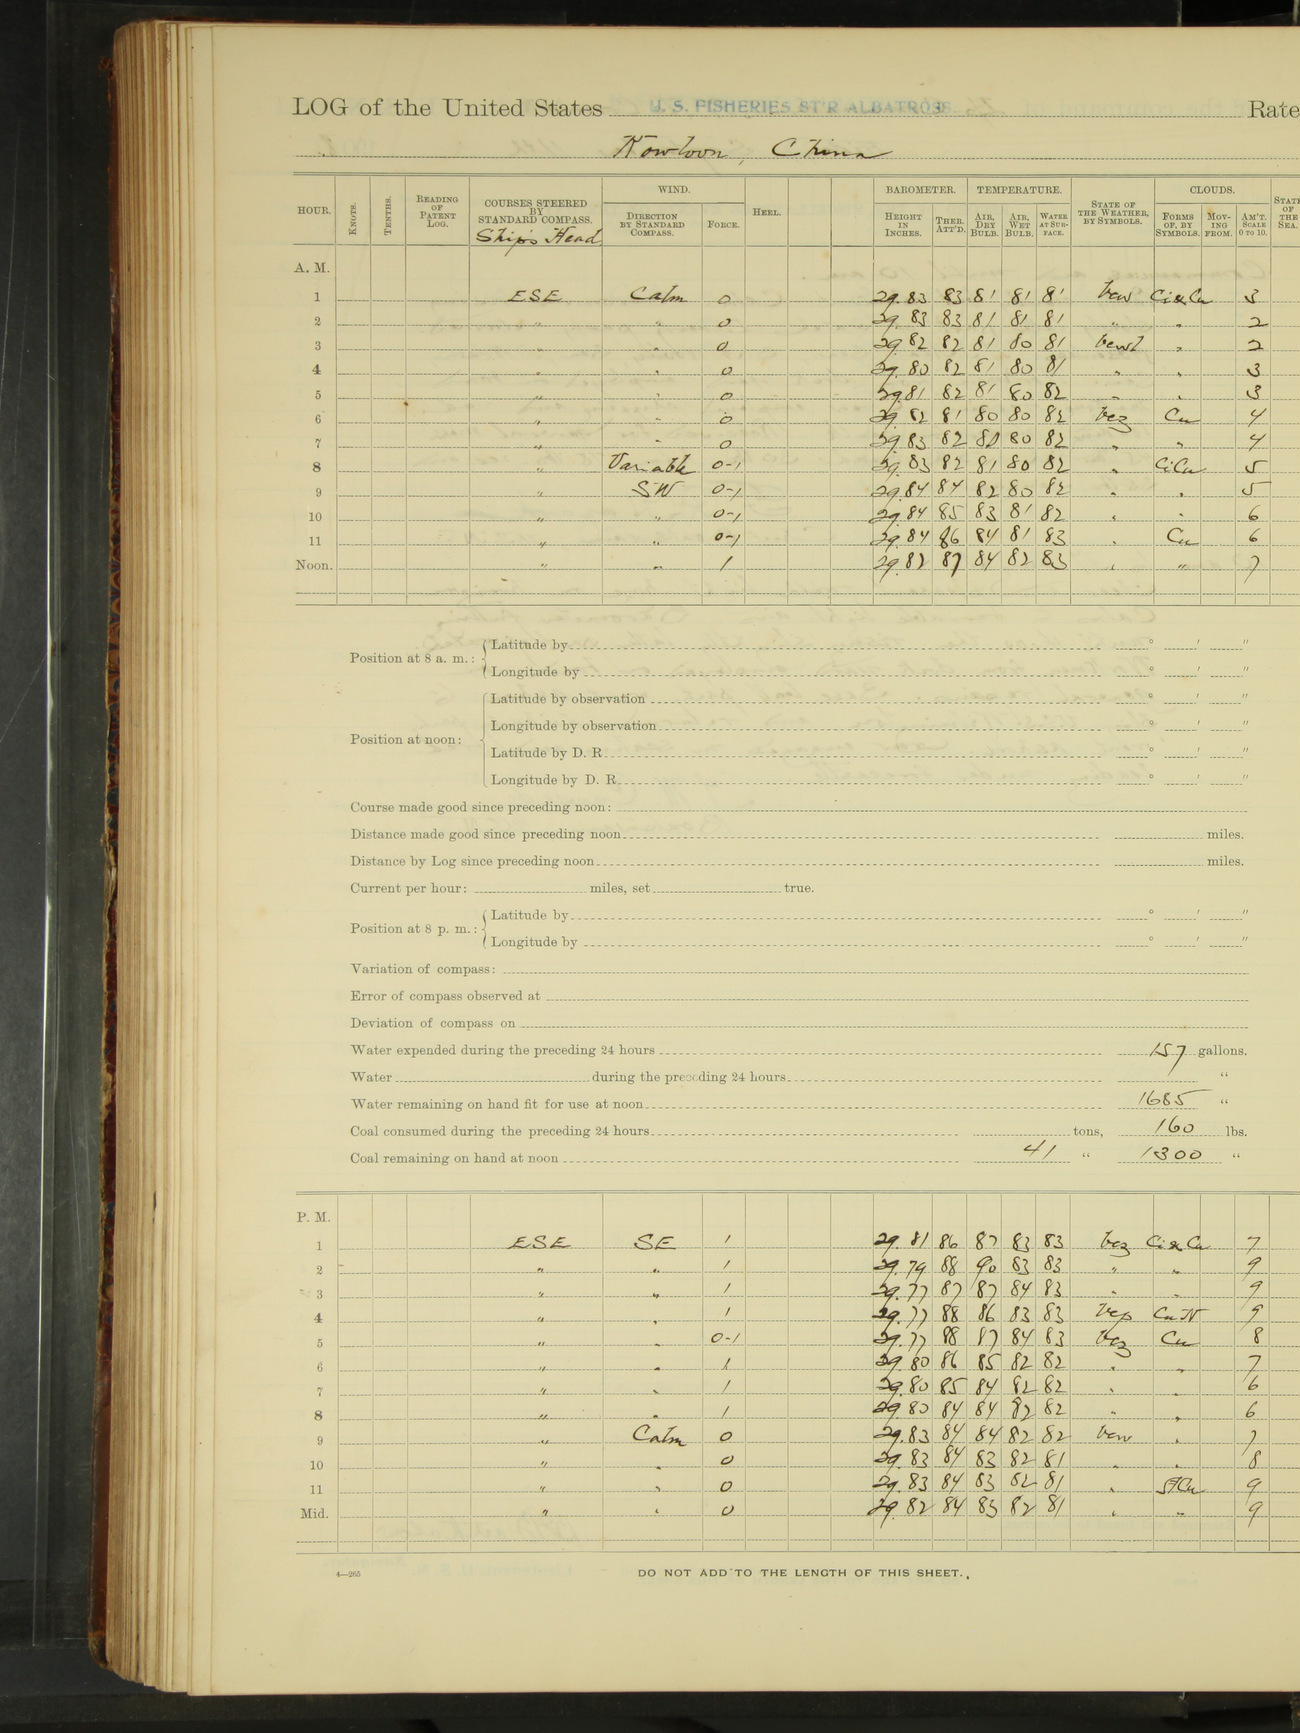 LOG of the United States U. S. FISHERIES ST'R ALBATROSS Rate
Kowloon, China
HOUR. KNOTS. TENTHS. READING OF PATENT LOG. COURSES STEERED BY STANDARD COMPASS. Ship's Head WIND. DIRECTION BY STANDARD COMPASS. FORCE. HEEL. BAROMETER. HEIGHT IN INCHES. THER. ATT'D. TEMPERATURE. AIR, DRY BULB. AIR, WET BULB. WATER AT SURFACE. STATE OF THE WEATHER, BY SYMBOLS. CLOUDS. FORMS OF, BY SYMBOLS. MOVING FROM. AM'T. SCALE 0 TO 10. STATE OF THE SEA.
A. M.
1 ESE Calm 0 29.83 83 81 81 81 bcw Ci&Cu 3
2 " " 0 29.83 83 81 81 81 " " 2
3 " " 0 29.82 82 81 80 81 bcwl " 2
4 " " 0 29.80 82 81 80 81 " " 3
5 " " 0 29.81 82 81 80 82 " " 3
6 " " 0 29.82 81 80 80 82 bcz Cu 4
7 " " 0 29.83 82 80 80 82 " " 4
8 " Variable 0-1 29.83 82 81 80 82 " CiCu 5
9 " SW 0-1 29.84 84 82 80 82 " " 5
10 " " 0-1 29.84 85 83 81 82 " " 6
11 " " 0-1 29.84 86 84 81 83 " Cu 6
Noon. " " 1 29.82 87 84 82 83 " " 7
Position at 8 a. m.: Latitude by ° ' "
Longitude by ° ' "
Position at noon: Latitude by observation ° ' "
Longitude by observation ° ' "
Latitude by D. R. ° ' "
Longitude by D. R. ° ' "
Course made good since preceding noon:
Distance made good since preceding noon miles.
Distance by Log since preceding noon miles.
Current per hour: miles, set true.
Position at 8 p. m.: Latitude by ° ' "
Longitude by ° ' "
Variation of compass:
Error of compass observed at
Deviation of compass on
Water expended during the preceding 24 hours 157 gallons.
Water during the preceding 24 hours "
Water remaining on hand fit for use at noon 1685 "
Coal consumed during the preceding 24 hours tons, 160 lbs.
Coal remaining on hand at noon 41 " 1300 "
P. M.
1 ESE SE 1 29.81 86 87 83 83 bcz Ci&Cu 7
2 " " 1 29.79 88 90 83 83 " " 9
3 " " 1 29.77 87 87 84 83 " " 9
4 " " 1 29.77 88 86 83 83 bcp CuN 9
5 " " 0-1 29.77 88 87 84 83 bcz Cu 8
6 " " 1 29.80 86 85 82 82 " " 7
7 " " 1 29.80 85 84 82 82 " " 6
8 " " 1 29.80 84 84 82 82 " " 6
9 " Calm 0 29.83 84 84 82 82 bcw " 7
10 " " 0 29.83 84 83 82 81 " " 8
11 " " 0 29.83 84 83 82 81 " StCu 9
Mid. " " 0 29.82 84 83 82 81 " " 9
4—265 DO NOT ADD TO THE LENGTH OF THIS SHEET.